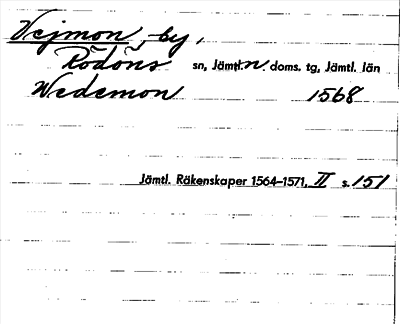 Vejmon, by,
Rödöns sn, Jämtl. n. doms. tg, Jämtl. län
Wedemon 1568
Jämtl. Räkenskaper 1564–1571, II s. 151